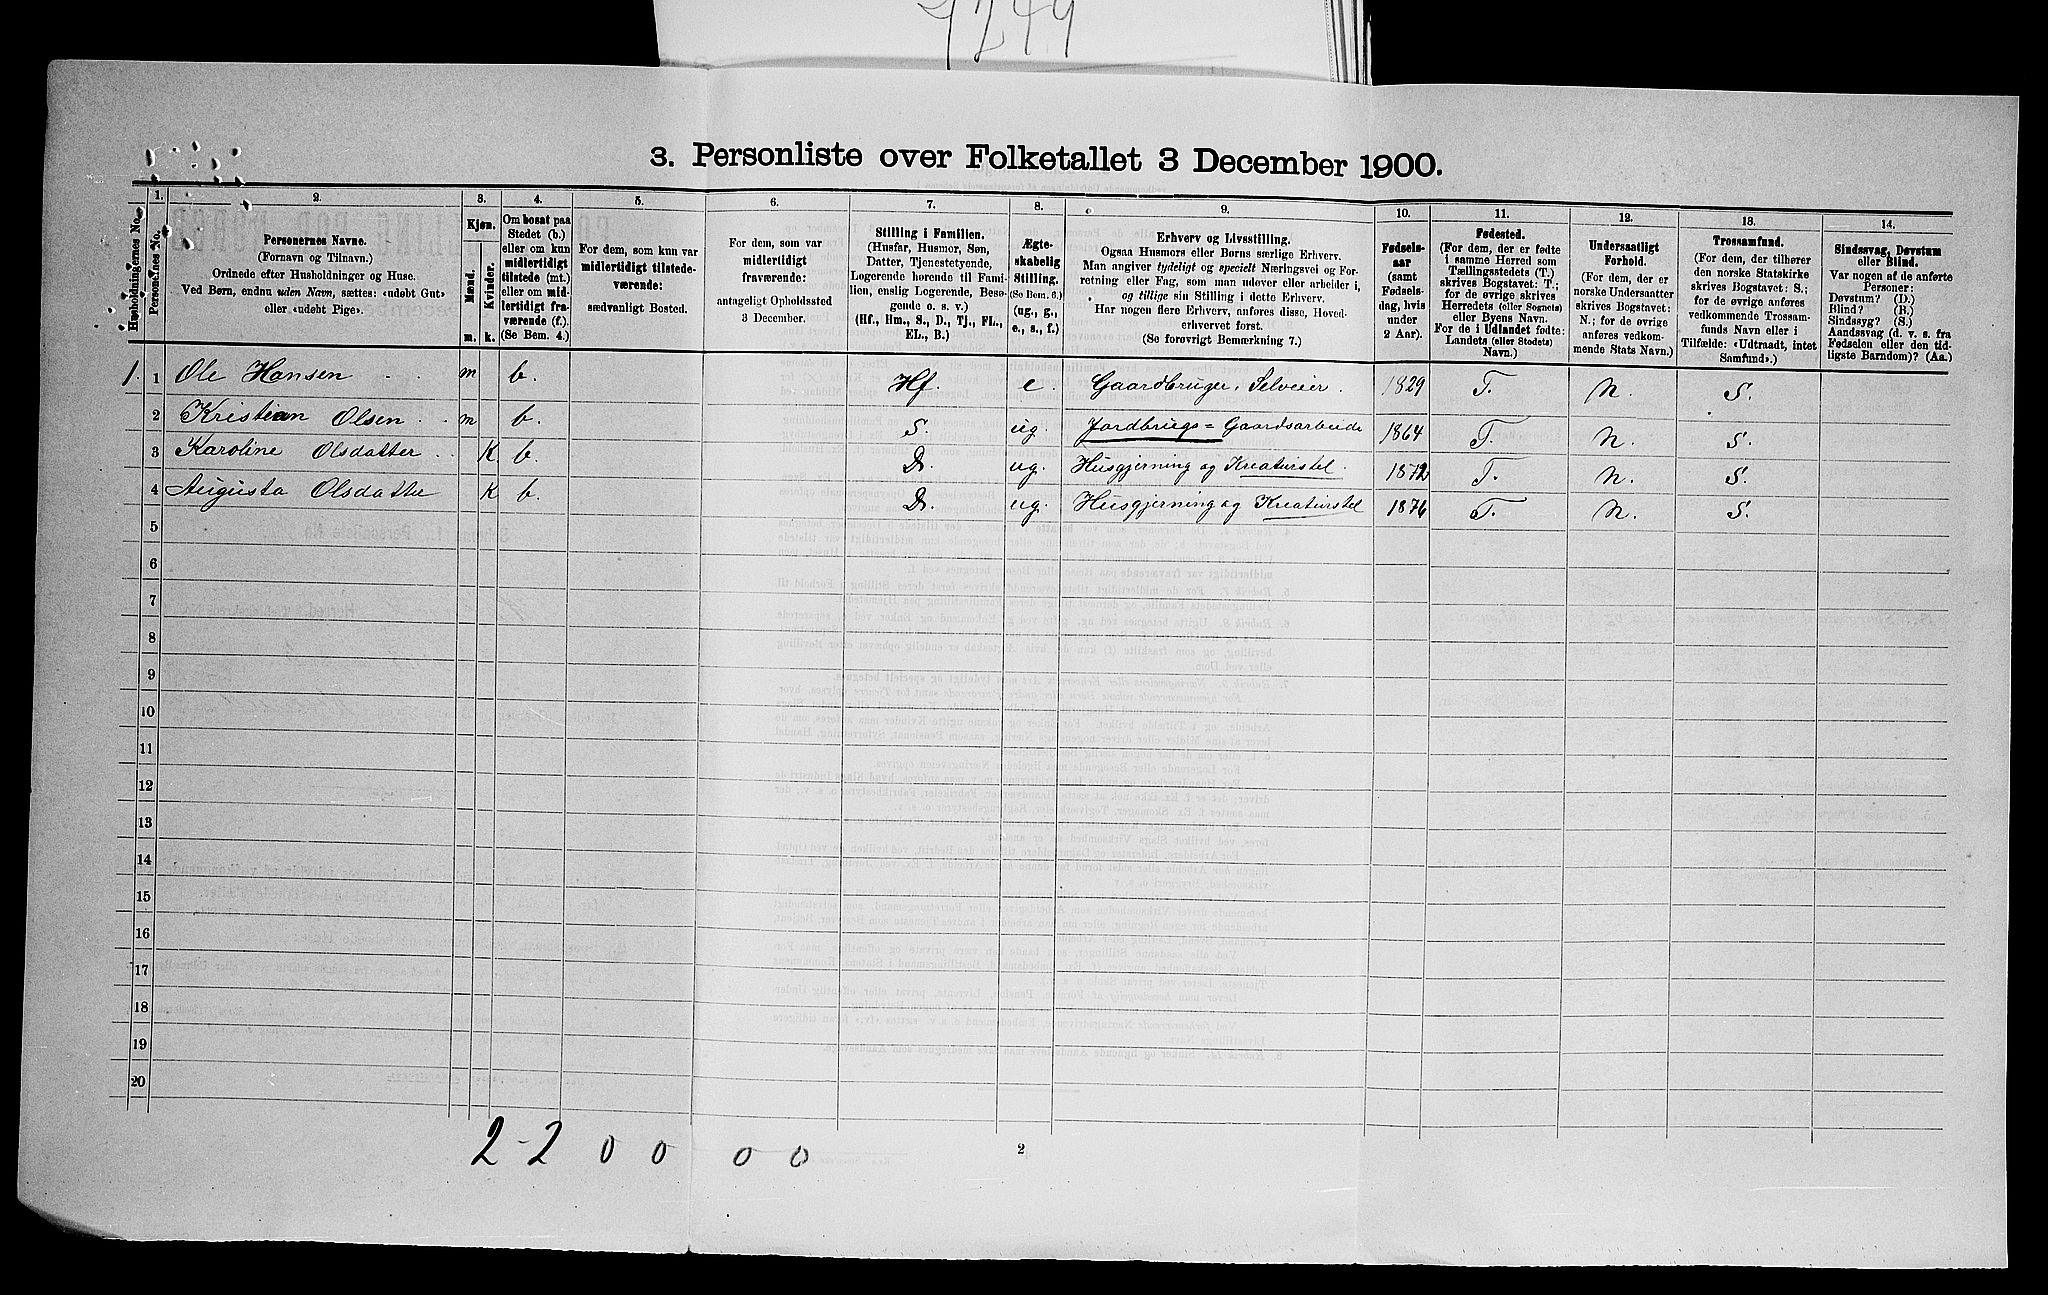 7249
3. Personliste over Folketallet 3 December 1900.
1. 2. 3. 4. 5. 6. 7. 8. 9. 10. 11. 12. 13. 14.
Husholdningernes No.
Personernes No.
Personernes Navne.
(Fornavn og Tilnavn.)
Ordnede efter Husholdninger og Huse.
Ved Børn, endnu uden Navn, sættes: «udøbt Gut»
eller «udøbt Pige».
Kjøn.
Mænd.
Kvinder.
m. k.
Om bosat paa
Stedet (b.)
eller om kun
midlertidigt
tilstede (mt.)
eller om mid-
lertidigt fra-
værende (f.).
(Se Bem. 4.)
For dem, som kun var
midlertidigt tilstede-
værende:
sædvanligt Bosted.
For dem, som var
midlertidigt
fraværende:
antageligt Opholdssted
3 December.
Stilling i Familien.
(Husfar, Husmor, Søn,
Datter, Tjenestetyende,
Logerende hørende til Fami-
lien, enslig Logerende, Besø-
gende o. s. v.)
(Hf., Hm., S., D., Tj., FL.,
EL., B.)
Ægte-
skabelig
Stilling.
(Se Bem. 6.)
(ug., g.,
e., s., f.)
Erhverv og Livsstilling.
Ogsaa Husmors eller Børns særlige Erhverv.
Man angiver tydeligt og specielt Næringsvei og For-
retning eller Fag, som man udøver eller arbeider i,
og tillige sin Stilling i dette Erhverv.
Har nogen flere Erhverv, anføres disse, Hoved-
erhvervet først.
(Se forøvrigt Bemærkning 7.)
Fødsels-
aar
(samt
Fødsels-
dag, hvis
under
2 Aar).
Fødested.
(For dem, der er fødte
i samme Herred som
Tællingsstedets (T.)
skrives Bogstavet: T.;
for de øvrige skrives
Herredets (eller Sognets)
eller Byens Navn.
For de i Udlandet fødte:
Landets (eller Stedets)
Navn.)
Undersaatligt
Forhold.
(For dem, der er
norske Undersaatter
skrives Bogstavet:
N.; for de øvrige
anføres vedkom-
mende Stats Navn.)
Trossamfund.
(For dem, der tilhører
den norske Statskirke
skrives Bogstavet: S.;
for de øvrige anføres
vedkommende Trossam-
funds Navn eller i
Tilfælde: «Udtraadt, intet
Samfund».)
Sindssvag, Døvstum
eller Blind.
Var nogen af de anførte
Personer:
Døvstum? (D.)
Blind? (B.)
Sindssyg? (S.)
Aandssvag (d. v. s. fra
Fødselen eller den tid-
ligste Barndom)? (Aa.)
1. 1 Ole Hansen m b. Hf. e. Gaardbruger, Selveier. 1829 T. N. S.
2 Kristian Olsen m b. S. ug. Jordbrugs= Gaardsarbeide 1864 T. N. S.
3 Karoline Olsdatter K. b. D. ug. Husgjerning og Kreaturstel. 1872 T. N. S.
4 Augusta Olsdatter K b. D. ug. Husgjerning og Kreaturstel 1876 T. N. S.
5
6
7
8
9
10
11
12
13
14
15
16
17
18
19
20
2-2 0 0 0 0
2